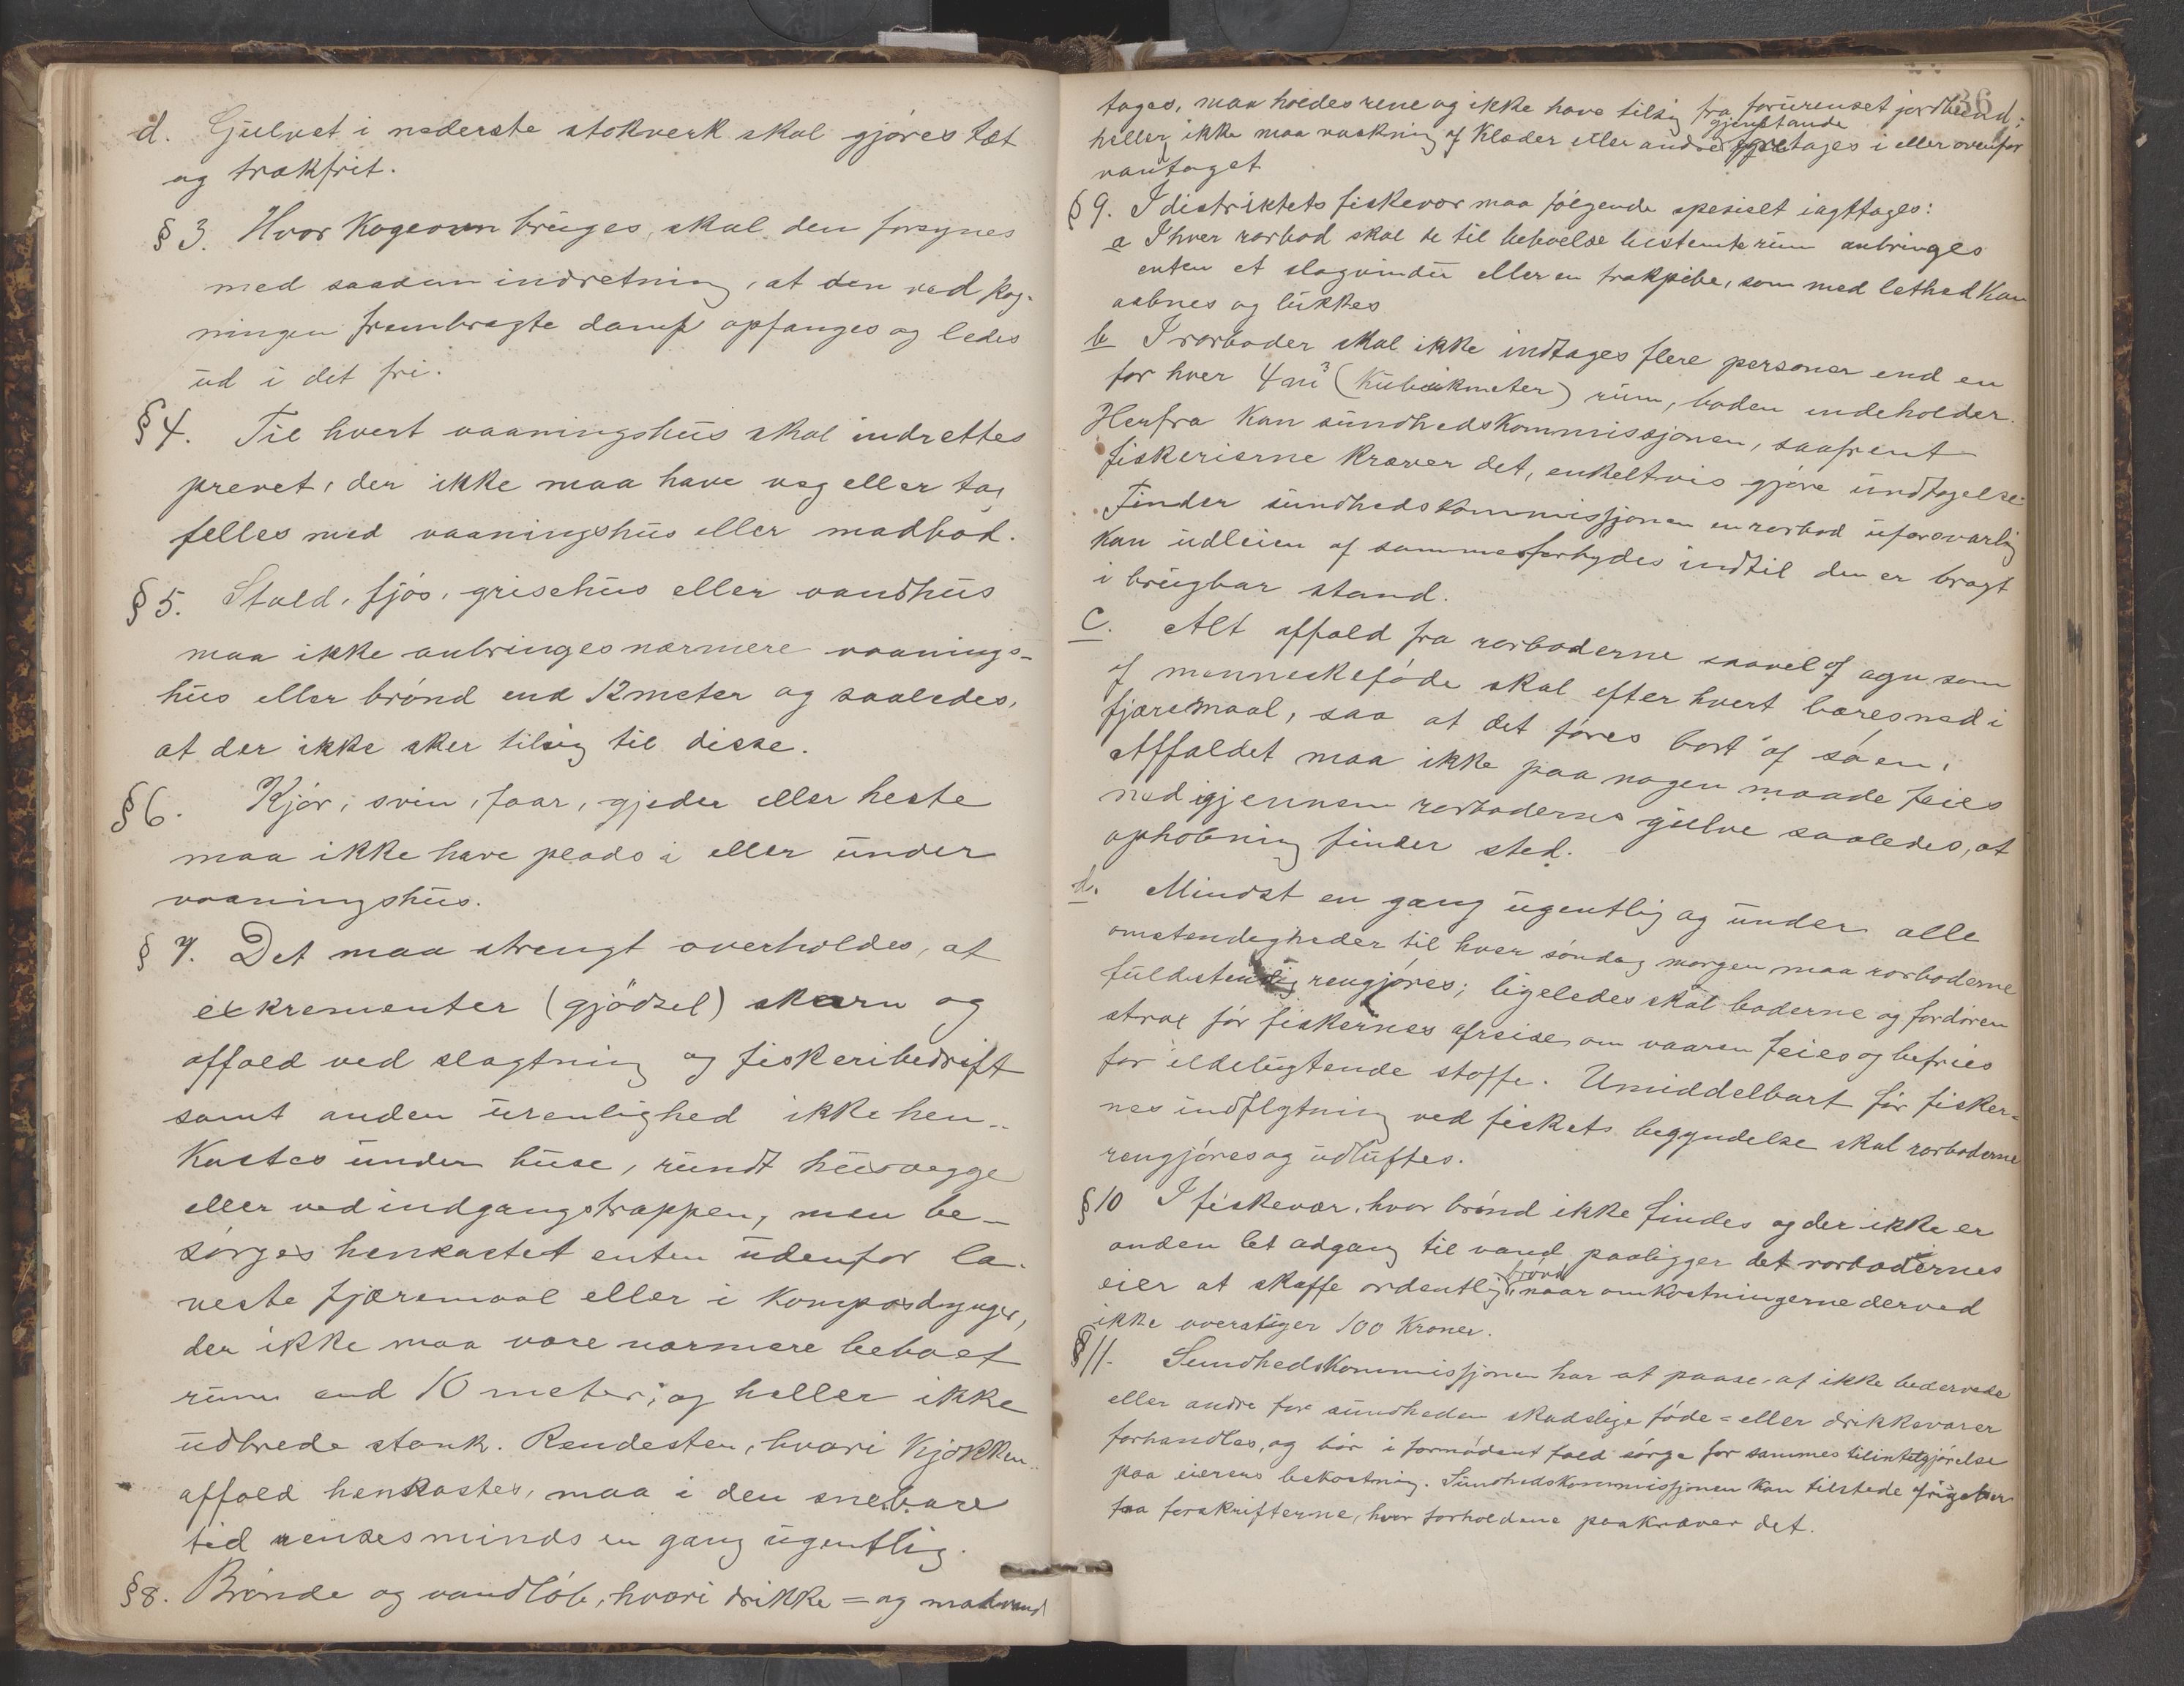 d. Gulvet i nederste stokverk skal gjøres tæt
og trækfrit.
§ 3. Hvor Kogeovn bruges, skal den forsynes
med saadan indretning, at den ved kog-
ningen frembragte damp opfanges og ledes
ud i det fri.
§ 4. Til hvert vaaningshus skal indrettes
prevet, der ikke maa have veg eller tag
felles med vaaningshus eller madbod.
§ 5. Stald, fjøs, grisehus eller vandhus
maa ikke anbringes nærmere vaanings-
hus eller brønd end 12 meter og saaledes,
at der ikke sker tilsig til disse.
§ 6. Kjør, svin, faar, gjeder eller heste
maa ikke have plads i eller under
vaaningshus.
§ 7. Det maa strengt overholdes, at
exkrementer (gjødsel) skarn og
affald ved slagtning og fiskeribedrift
samt anden urenlighed ikke hen-
Kastes under huse, rundt husvegge
eller ved indgangstrappen, men be-
sørges henkastet enten udenfor la-
veste fjæremaal eller i Komposdynger,
der ikke maa være nærmere beboet
rum end 10 meter, og heller ikke
udbrede stank. Rendesten, hvori Kjøkken-
affald henkastes, maa i den snebare
tid renses minds en gang ugentlig.
§ 8. Brønde og vandløb, hvori drikke = og madvand
36
tages, maa holdes rene og ikke have tilsig fra forurenset jordbund;
gjenstande
heller ikke maa vaskning af Klæder eller andre foretages i eller ovenfor
vantaget
§ 9. I distriktets fiskevær maa følgende spesielt iagttages:
a I hver rorbod skal de til beboelse bestemte rum anbringes
enten et slagvindu eller en trækpibe, som med lethed Kan
aabnes og lukkes
b I rorboder skal ikke indtages flere personer end en
for hver 4 m³ (Kubikmeter) rum, boden indeholder.
Herfra Kan sundhedskommissjonen, saafremt
fiskerierne kræver det, enkeltvis gjøre undtagelse.
Finder sundhedskommissjonen en rorbod uforsvarlig
Kan udleien af samme forbydes indtil den er bragt
i brugbar stand.
c. Alt affald fra rorboderne saavel af agn som
af menneskeføde skal efter hvert bæres ned i
fjæremaal, saa at det føres bort af søen.
Affaldet maa ikke paa nogen maade feies
ned igjennem rorbodernes gulve saaledes, at
ophobning finder sted.
d. Mindst en gang ugentlig og under alle
omstendigheder til hver søndag morgen maa rorboderne
fuldstendig rengjøres; ligeledes skal boderne og fordøren
strax før fiskernes afreise om vaaren feies og befries
for ildelugtende stoffe. Umiddelbart før fisker-
nes indflytning ved fiskets begyndelse skal rorboderne
rengjøres og udluftes.
§ 10 I fiskevær, hvor brønd ikke findes og der ikke er
anden let adgang til vand paaligger det rorbodernes
brønd
eier at skaffe ordentlig, naar omkostningerne derved
ikke overstiger 100 Kroner.
§ 11. Sundhedskommissjonen har at paase, at ikke bedervede
eller andre for sundheden skadelige føde = eller drikkevarer
forhandles, og bør i fornødent fald sørge for sammes tilintetgjørelse
paa eierens bekostning. Sundhedskommissjonen kan tilstede
fra forskrifterne, hvor forholdene paakræver det.